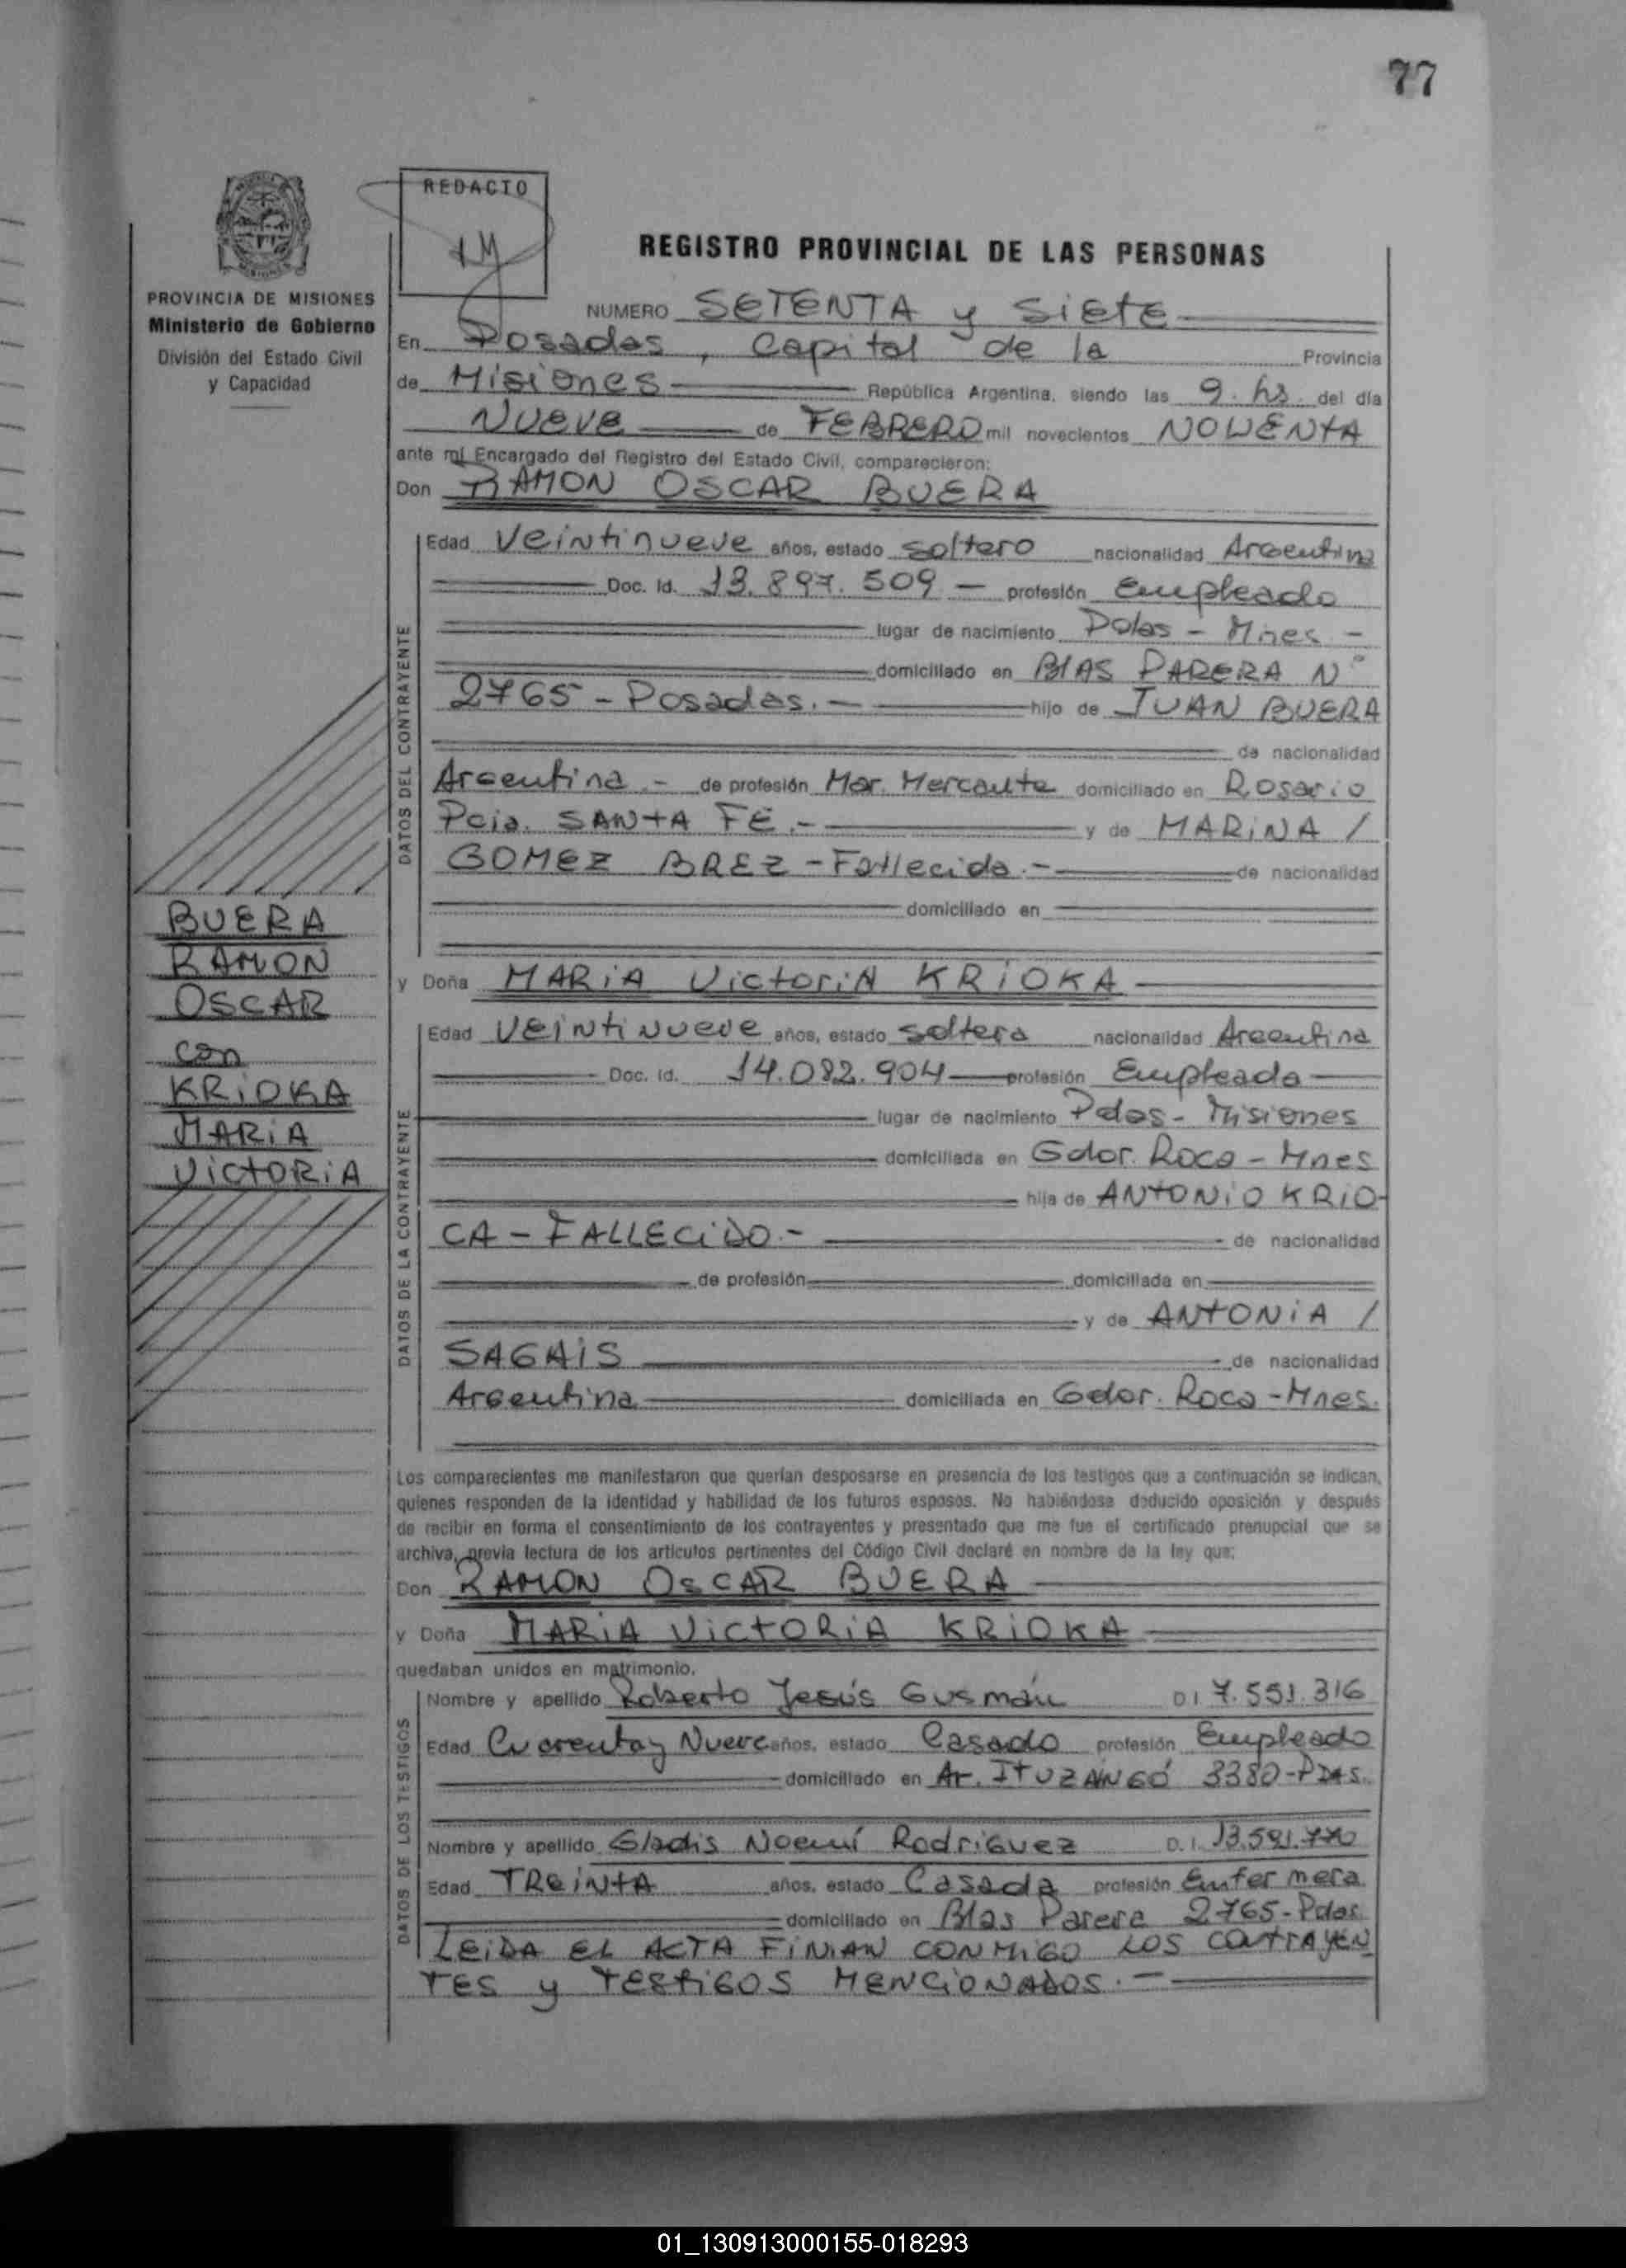 77
REDACTO
REGISTRO PROVINCIAL DE LAS PERSONAS
PROVINCIA DE MISIONES
Ministerio de Gobierno
División del Estado Civil
y Capacidad
NUMERO SETENTA y SiETE
En Posadas, Capital de la Provincia
de Misiones República Argentina, siendo las 9. hs. del día
NUEVE de FEBRERO mil novecientos NOVENTA
ante mí Encargado del Registro del Estado Civil, comparecieron:
Don RAMON OSCAR BUERA
DATOS DEL CONTRAYENTE
Edad Veintinueve años, estado soltero nacionalidad Argentina
Doc. Id. 13.897.509 - profesión Empleado
lugar de nacimiento Pdas - Mnes -
domiciliado en BlAS PARERA N°
2765 - Posadas. - hijo de JUAN BUERA
de nacionalidad
Argentina - de profesión Mar. Mercante domiciliado en Rosario
Pcia. SANTA FE.- y de MARiNA /
GOMEZ BREZ - Fallecida.- de nacionalidad
domiciliado en
BUERA
RAMON
OSCAR
con
KRiOKA
MARiA
VictORiA
y Doña MARiA VictoriA KRiOKA
DATOS DE LA CONTRAYENTE
Edad VEiNtiNueve años, estado soltera nacionalidad Argentina
Doc. Id. 14.082.904 profesión Empleada
lugar de nacimiento Pdas - Misiones
domiciliada en Gdor. Roca - Mnes
hija de ANTONiO KRIO-
CA - FALLECiDO.- de nacionalidad
de profesión domiciliada en
y de ANTONiA /
SAGAiS de nacionalidad
Argentina domiciliada en Gdor. Roca - Mnes.
Los comparecientes me manifestaron que querían desposarse en presencia de los testigos que a continuación se indican,
quienes responden de la identidad y habilidad de los futuros esposos. No habiéndose deducido oposición y después
de recibir en forma el consentimiento de los contrayentes y presentado que me fue el certificado prenupcial que se
archiva, previa lectura de los artículos pertinentes del Código Civil declaré en nombre de la ley que:
Don RAMON OSCAR BUERA
y Doña MARiA VictORiA KRiOKA
quedaban unidos en matrimonio.
DATOS DE LOS TESTIGOS
Nombre y apellido Roberto Jesús Gusmán D I 7.551.316
Edad Cuarenta y Nueve años, estado Casado profesión Empleado
domiciliado en Av. ITUZAINGÓ 3380 - PDAS.
Nombre y apellido Gladis Noemí RodriGuez D. I. 13.591.770
Edad TREiNtA años, estado Casada profesión Enfermera
domiciliado en Blas Parera 2765 - Pdas.
LEiDA EL ACTA FiRMAN CONMiGO LOS CONTRAYEN
TES y TESTiGOS MENCiONADOS. -
01_130913000155-018293